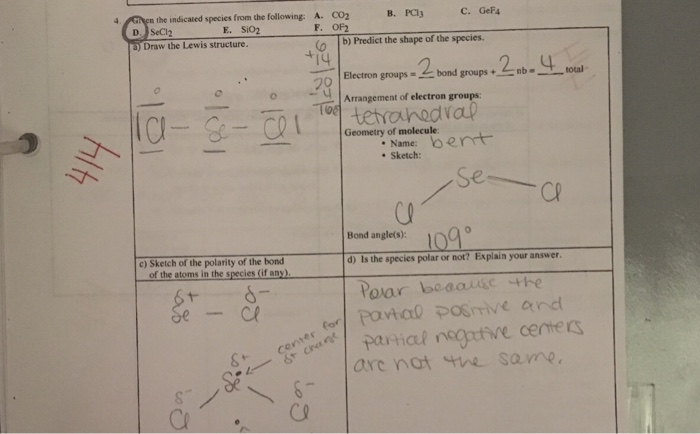 4. Given the indicated species from the following: A. CO2 B. PCl3 C. GeF4
D. SeCl2 E. SiO2 F. OF2
a) Draw the Lewis structure.
6
+14
20
- 4
16e
0 0 0
|Cl - Se - Cl|
4/4
b) Predict the shape of the species.
Electron groups = 2 bond groups + 2 nb = 4 total
Arrangement of electron groups:
tetrahedral
Geometry of molecule:
• Name: bent
• Sketch:
Se
Cl Cl
Bond angle(s): 109°
c) Sketch of the polarity of the bond
of the atoms in the species (if any).
δ+ δ-
Se - Cl
center for
δ+ charge
δ+
Se
δ- δ-
Cl Cl
d) Is the species polar or not? Explain your answer.
Polar because the
partial positive and
partial negative centers
are not the same.